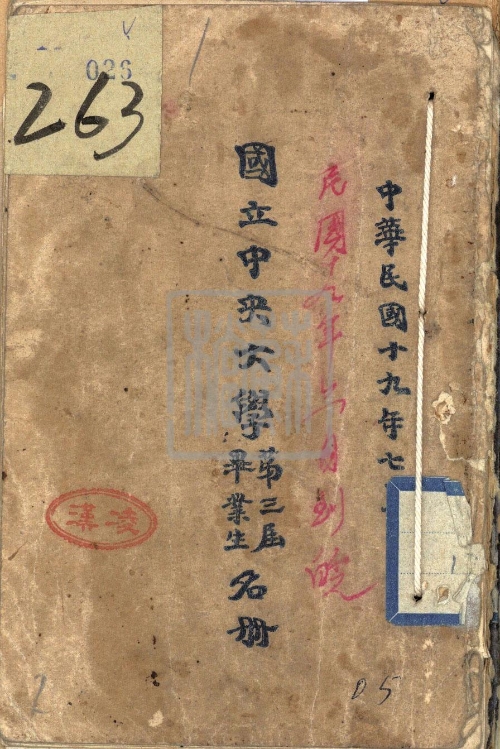 026
263
中華民國十九年七
民國十九年六月到皖
國立中央大學第三屆畢業生名册
凌溝
D 5
2